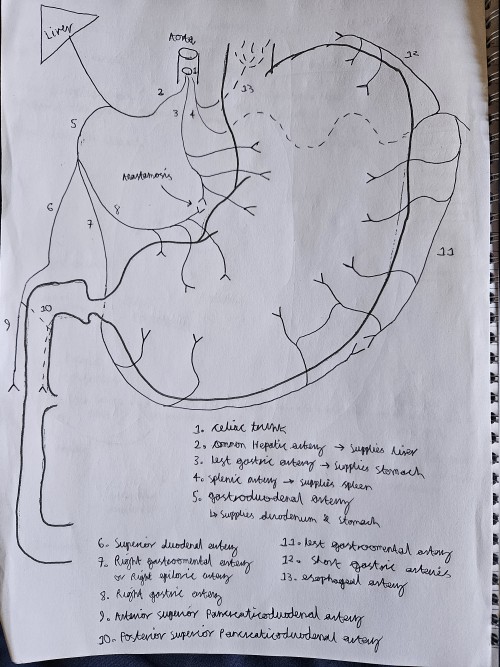 Liver
Aorta
1
2
3
4
13
12
5
Anastomosis
6
7
8
11
9
10
1. celiac trunk
2. common Hepatic artery → supplies liver
3. Left gastric artery → supplies stomach
4. splenic artery → supplies spleen
5. gastroduodenal artery
↳ supplies duodenum & stomach
6. Superior duodenal artery
7. Right gastroomental artery
or Right epiloric artery
8. Right gastric artery
9. Anterior superior Pancreaticoduodenal artery
10. Posterior superior Pancreaticoduodenal artery
11. left gastroomental artery
12. Short gastric arteries
13. esophageal artery